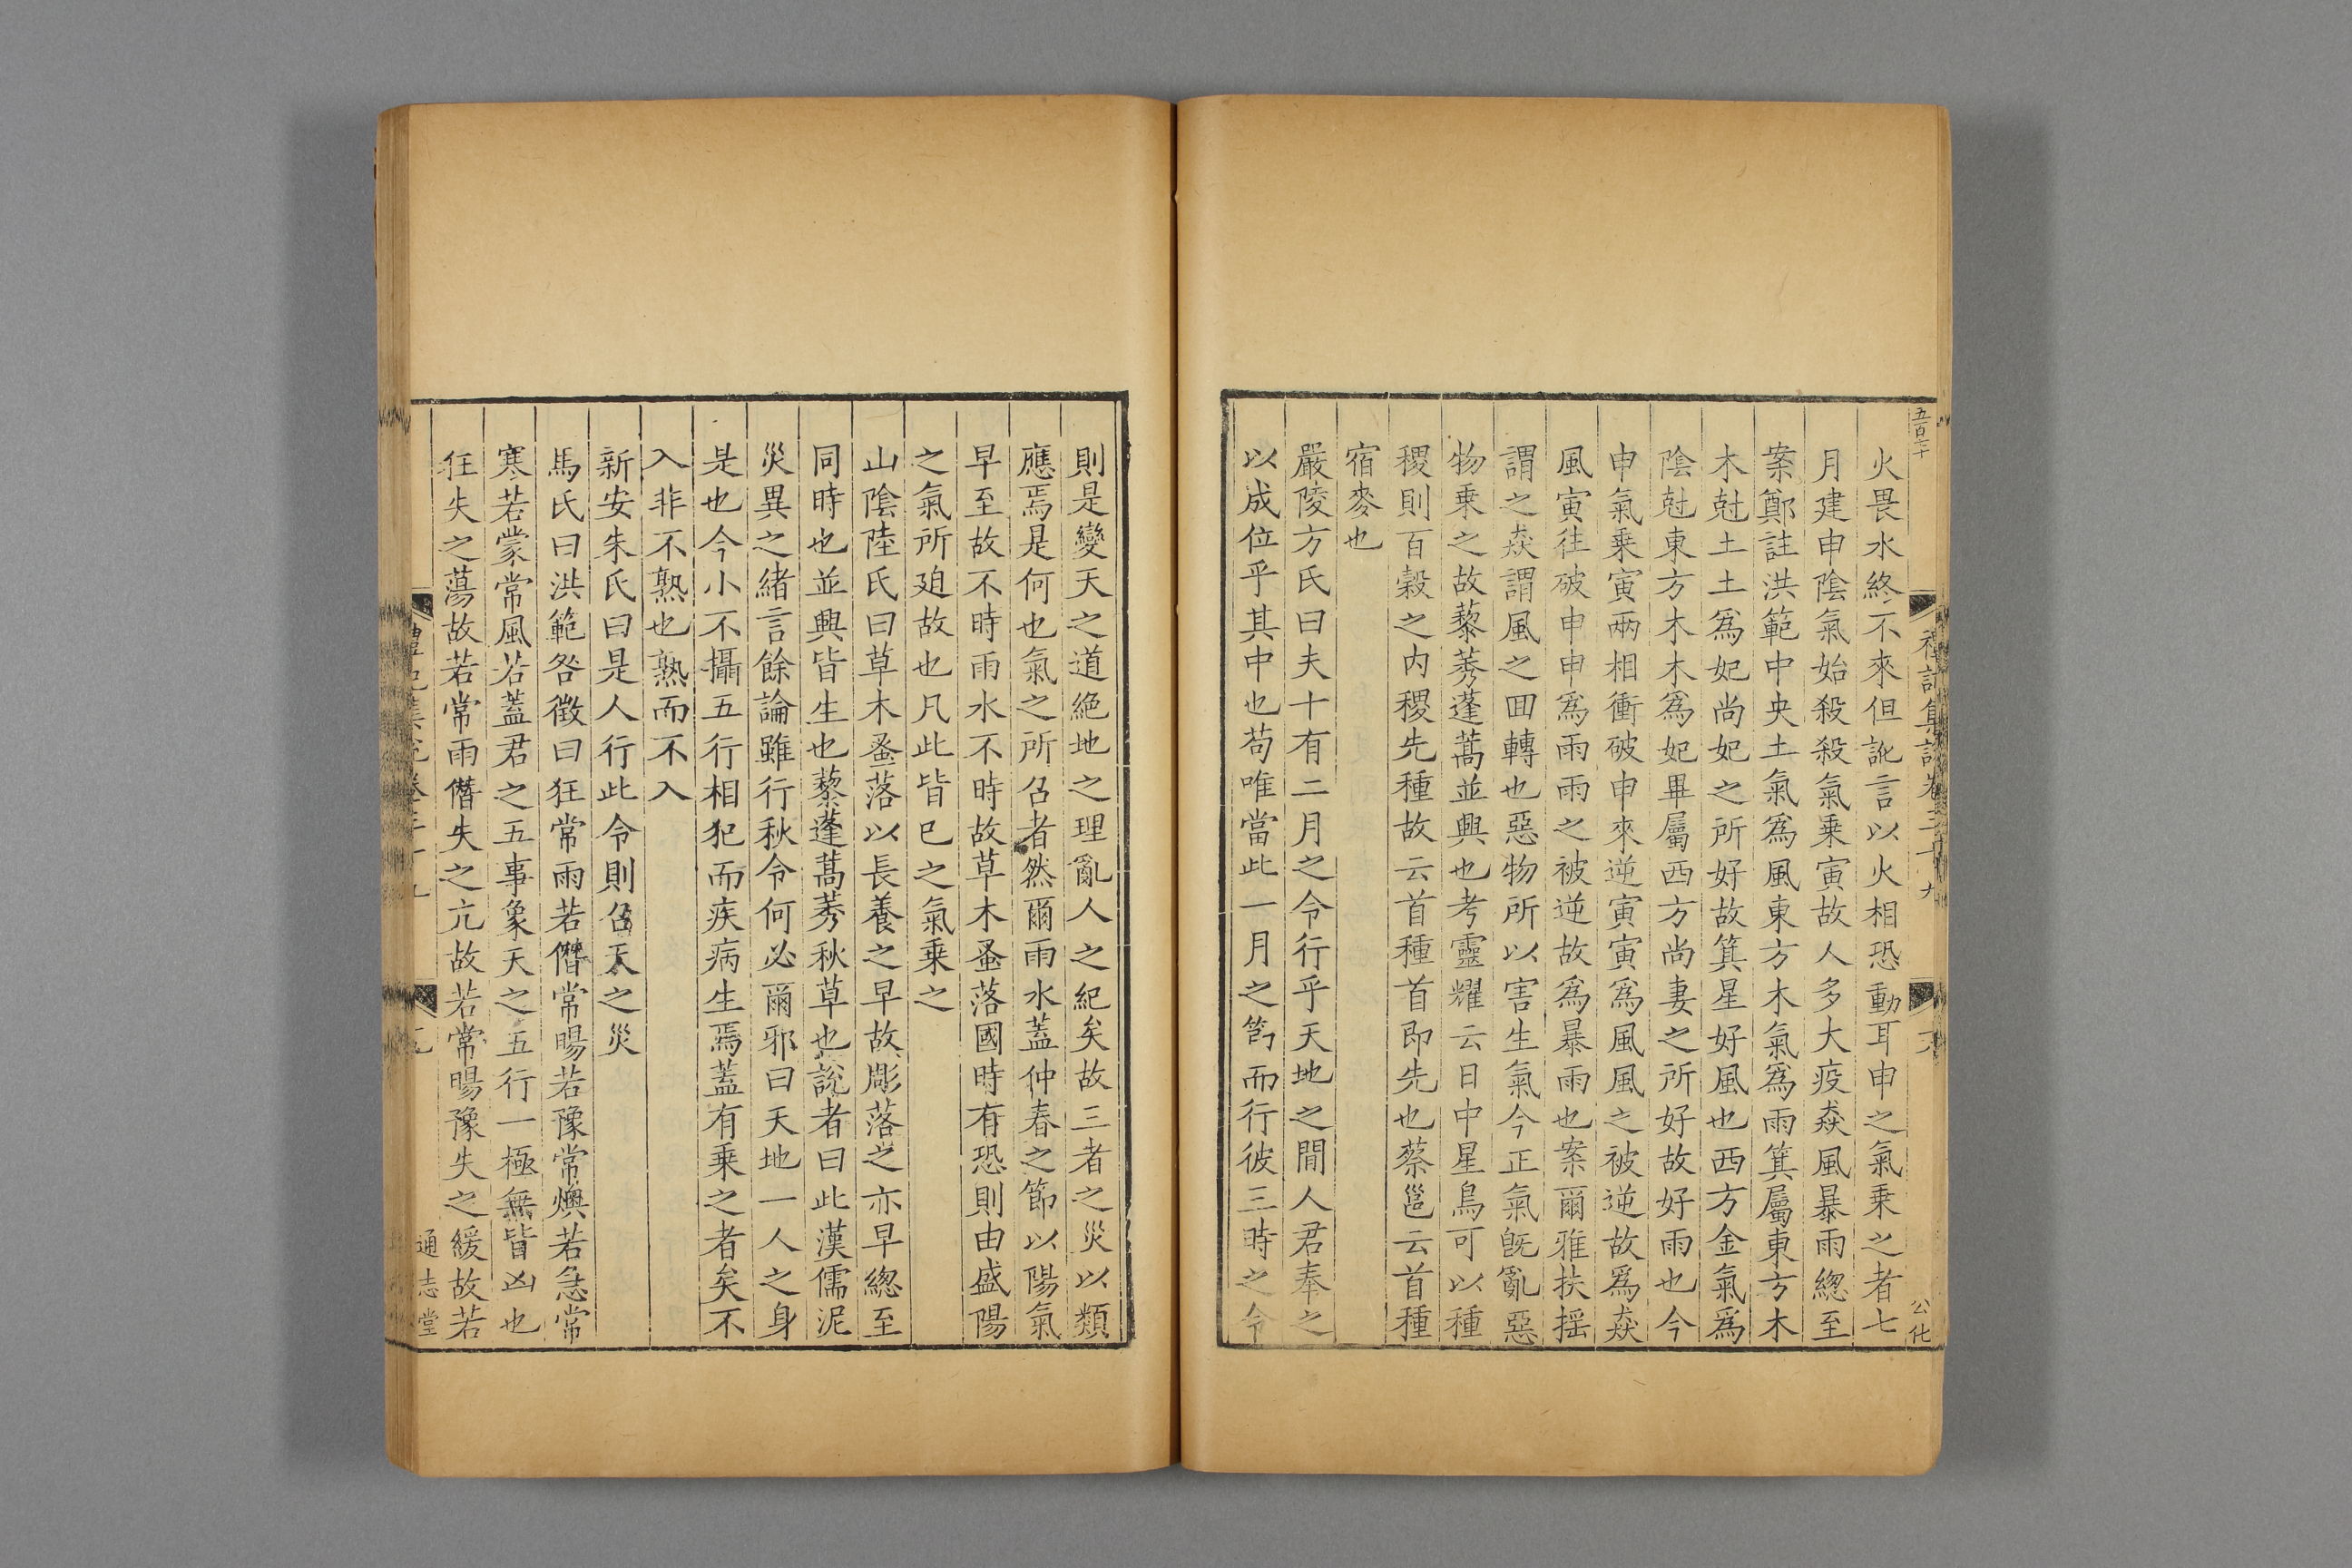 五百六十
禮記集說卷三十九
六
公化
火畏水終不來但訛言以火相恐動耳申之氣乗之者七
月建申陰氣始殺殺氣乗寅故人多大疫猋風暴雨緫至
案鄭註洪範中央土氣爲風東方木氣爲雨箕屬東方木
木尅土土爲妃尚妃之所好故箕星好風也西方金氣爲
陰尅東方木木爲妃畢屬西方尚妻之所好故好雨也今
申氣乗寅兩相衝破申來逆寅寅爲風風之被逆故爲猋
風寅往破申申爲雨雨之被逆故爲暴雨也案爾雅扶揺
謂之猋謂風之回轉也惡物所以害生氣今正氣旣亂惡
物乗之故藜莠蓬蒿並興也考靈耀云日中星鳥可以種
稷則百穀之内稷先種故云首種首即先也蔡邕云首種
宿麥也
嚴陵方氏曰夫十有二月之令行乎天地之間人君奉之
以成位乎其中也苟唯當此一月之笉而行彼三時之令
則是變天之道絶地之理亂人之紀矣故三者之災以類
應焉是何也氣之所召者然爾雨水蓋仲春之節以陽氣
早至故不時雨水不時故草木蚤落國時有恐則由盛陽
之氣所廹故也凡此皆巳之氣乗之
山陰陸氏曰草木蚤落以長養之早故彫落之亦早緫至
同時也並興皆生也藜蓬蒿莠秋草也說者曰此漢儒泥
災異之緒言餘論雖行秋令何必爾邪曰天地一人之身
是也今小不攝五行相犯而疾病生焉蓋有乗之者矣不
入非不熟也熟而不入
新安朱氏曰是人行此令則召天之災
馬氏曰洪範咎徴曰狂常雨若僭常暘若豫常燠若急常
寒若蒙常風若蓋君之五事象天之五行一極無皆凶也
狂失之蕩故若常雨僭失之亢故若常暘豫失之緩故若
通志堂